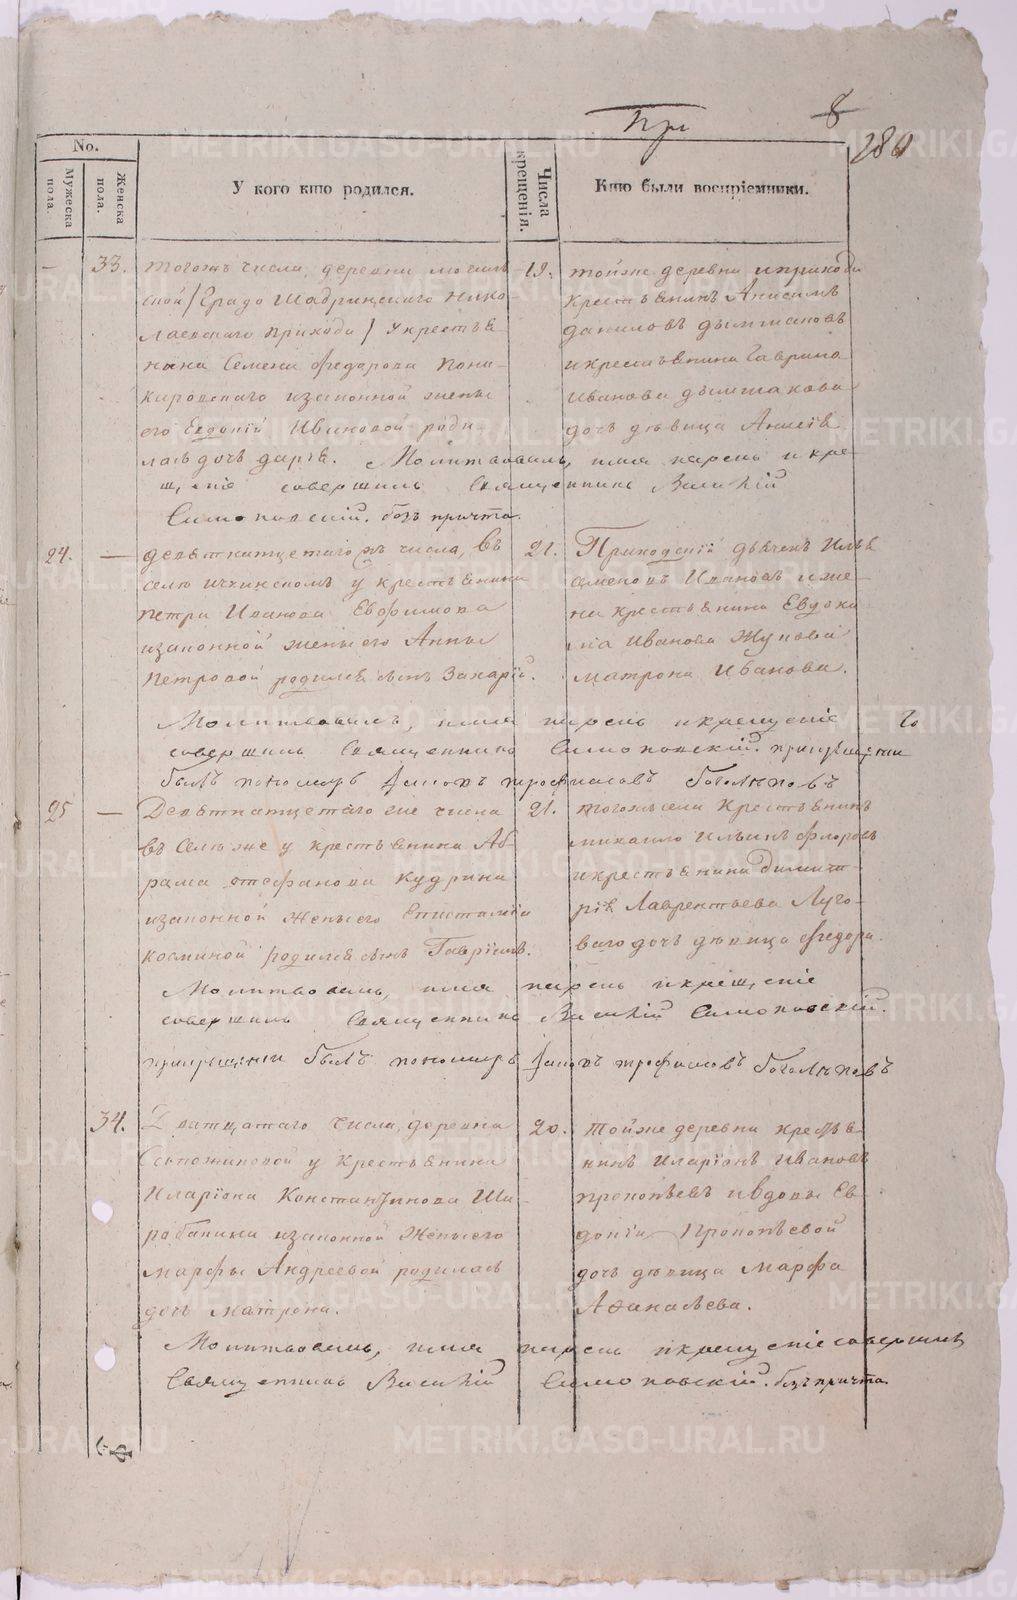 При
8
280
No.
Мужеска пола.
Женска пола.
У кого кто родился.
Числа крещенія.
Кто были воспріемники.
— 33. тогожъ числа, деревни могиль
ской /Града Шадринскаго Нико
лаевскаго прихода/ у крестья
нина Семена Федорова Пони
кировскаго изаконной жены
его Евдокіи Ивановой роди
лась дочь дарія.
19. тойже деревни иприхода
крестьянинъ Анисимъ
даниловъ дымшаковъ
икрестьянина Гаврила
Иванова дымшакова
дочь дѣвица
Молитвовалъ, имя нарекъ икре
щеніе совершилъ Священникъ Василій
Симоновскій. безъ причта.
24. — девятнатцетагожъ числа, въ
селѣ Ичкинскомъ у крестьянина
Петра Иванова Евфимова
изаконной жены его Анны
Петровой родился сынъ Захарій.
21. Приходскій дьячекъ Илья
Семеновъ Ивановъ ижe
на крестьянина Евдоки
ма Иванова Жукова
матрона Иванова.
Молитвовалъ, имя нарекъ икрещеніе
совершилъ Священникъ Симоновскій. прикрещеніи
былъ пономарь Трофимовъ Боголѣповъ
25 — Девятнатцетаго же числа
въ Селѣ же у крестьянина Аб
рама стефанова Кудрина
изаконной жены его Епистиміи
косминой родился сынъ Гавріилъ.
21. тогожъ села Крестьянинъ
михаило Ильинъ Фроловъ
икрестьянина Димит
рія Лаврентьева Луго
ваго дочь дѣвица Федора.
Молитвовалъ, имя нарекъ икрещеніе
совершилъ Священникъ Василій Симоновскій.
прикрещеніи былъ пономарь Трофимовъ Боголѣповъ
34. Дватцатаго числа, деревни
у Крестьянина
Иларіона Константинова Ши
рабакина изаконной Жены его
марфы Андреевой родилась
дочь матрона.
20. тойже деревни крестья
нинъ Иларіонъ Ивановъ
прокопьевъ ивдовы Ев
докіи Прокопьевой
дочь дѣвица Марфа
Афанасьева.
Молитвовалъ, имя нарекъ икрещеніе совершилъ
Священникъ Василій Симоновскій. безъ причта.
METRIKI.GASO-URAL.RU